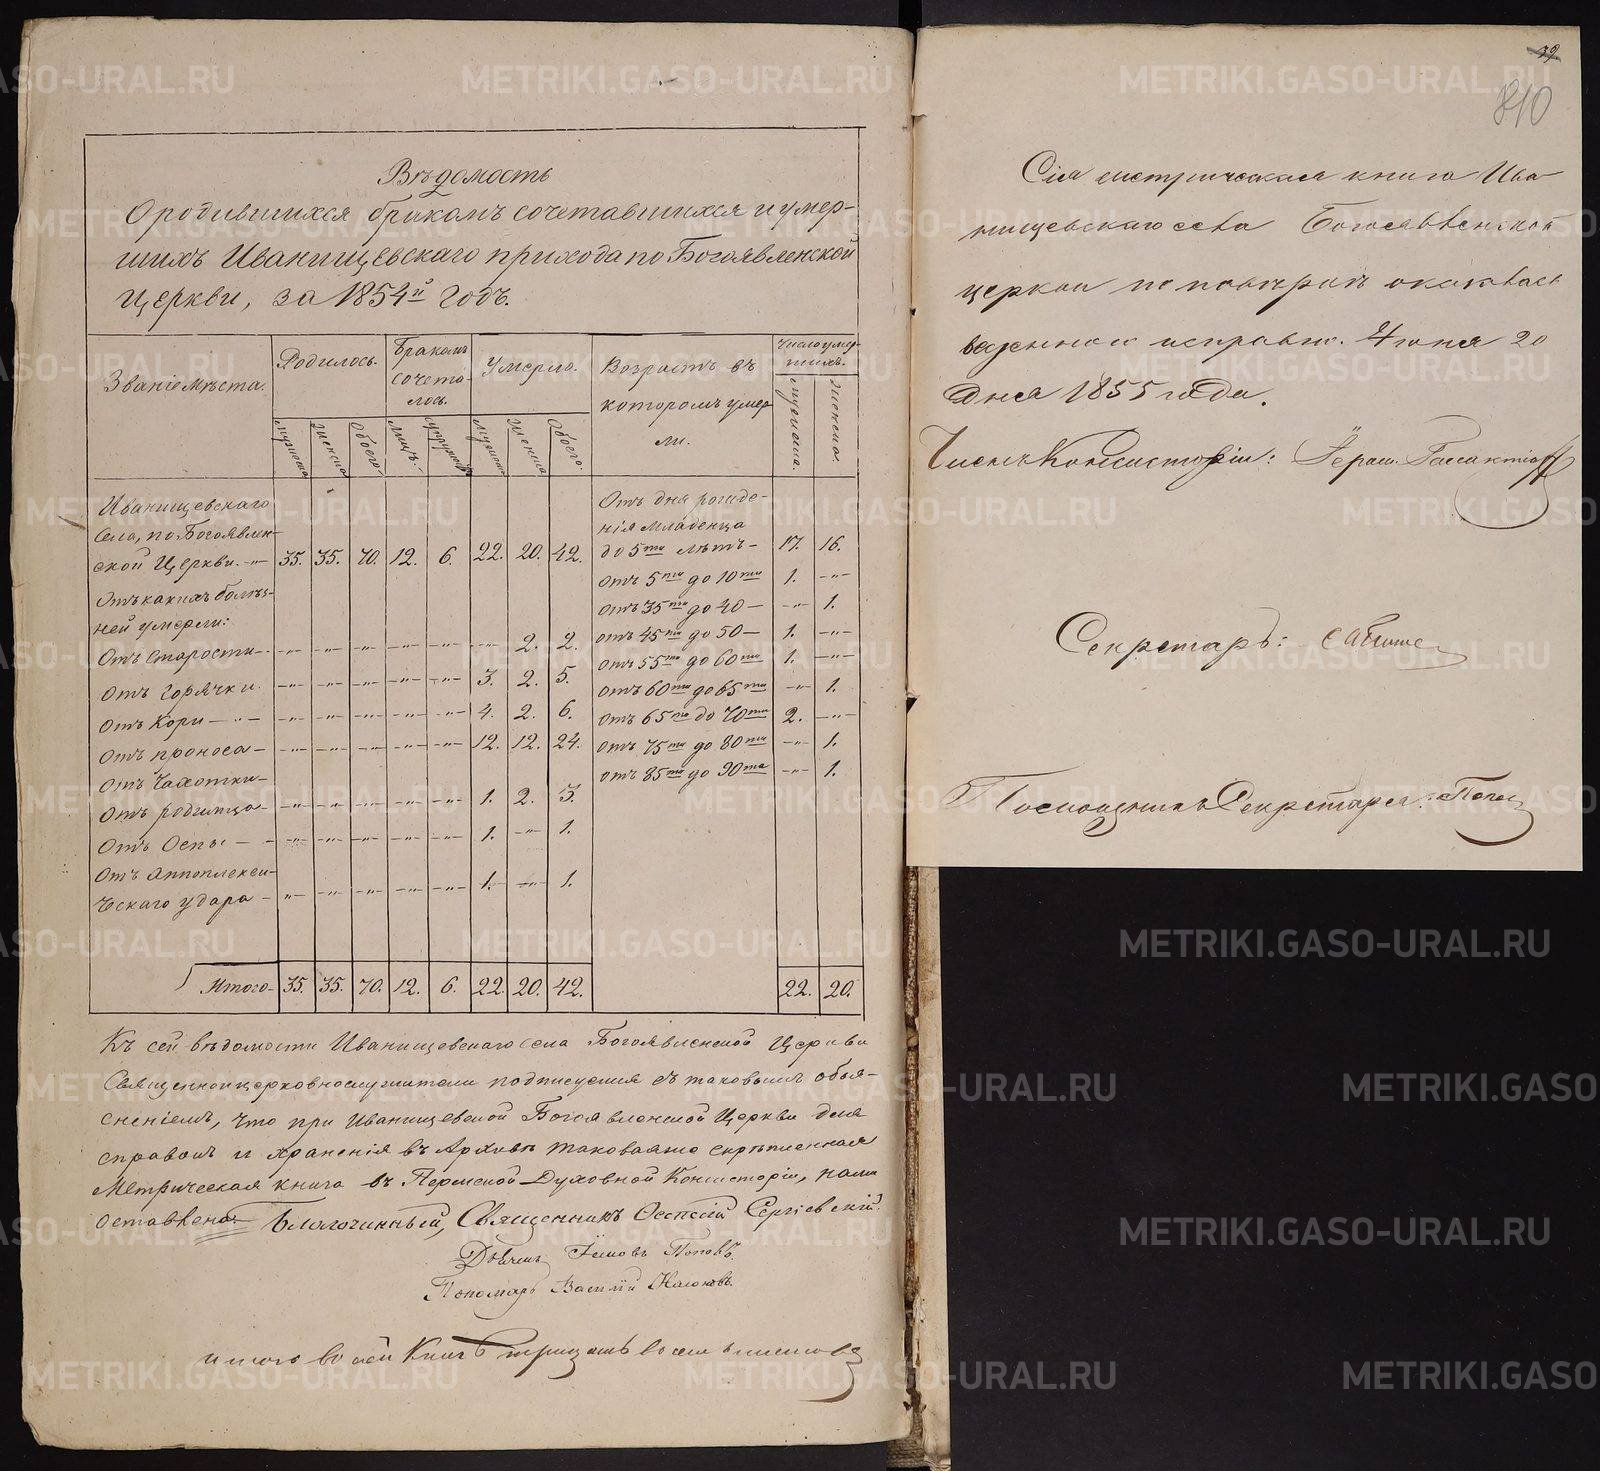 Вѣдомость
О родившихся бракомъ сочетавшихся и умер-
шихъ Иванищевскаго прихода по Богоявленской
церкви, за 1854й годъ.
Званіе мѣста.
Родилось.
Бракомъ
сочета-
лось.
Умерло.
Возрастъ въ
которомъ умер
ли.
Число умер-
шихъ.
мужеска
женска
обоего.
лицъ.
супружест.
мужеск.
женска
обоего.
мужеска.
женска.
Иванищевскаго
села, по Богоявлен-
ской Церкви. 35. 35. 70. 12. 6. 22. 20. 42.
Отъ какихъ болѣз-
ней умерли:
Отъ старости -"- -"- -"- -"- -"- -"- 2. 2.
Отъ горячки. -"- -"- -"- -"- -"- 3. 2. 5.
Отъ Кори -"- -"- -"- -"- -"- 4. 2. 6.
Отъ проноса -"- -"- -"- -"- -"- 12. 12. 24.
Отъ Чахотки
Отъ родимца -"- -"- -"- -"- -"- 1. 2. 3.
Отъ Оспы -"- -"- -"- -"- -"- 1. -"- 1.
Отъ Апоплекси-
ческаго удара -"- -"- -"- -"- -"- 1. -"- 1.
Отъ дня рожде-
нія младенца
до 5ти лѣтъ 17. 16.
Отъ 5ти до 10ти 1. -"-
отъ 35ти до 40 -"- 1.
отъ 45ти до 50 1. -"-
отъ 55ти до 60ти 1. -"-
отъ 60ти до 65ти -"- 1.
отъ 65ти до 70ти 2. -"-
отъ 75ти до 80ти -"- 1.
отъ 85ти до 90та -"- 1.
Итого 35. 35. 70. 12. 6. 22. 20. 42. 22. 20.
Къ сей вѣдомости Иванищевскаго села Богоявленской Церкви
Священноицерковнослужители подписуемся съ таковымъ объя-
сненіемъ, что при Иванищевской Богоявленской Церкви для
справокъ и храненія въ Архивѣ таковаяже скрѣпленная
Метрическая книга въ Пермской Духовной Консисторіи, нами
оставлена. Благочинный, Священникъ Сергіевскій.
Попов
Пономарь Василій
итого во сей Книгѣ тридцать восемь листовъ
39
810
Сія метрическая книга Ива-
нищевскаго села Богоявленской
церкви по повѣркѣ оказалась
веденною исправно. Іюня 20
дня 1855 года.
Членъ Консисторіи: Іерей
Секретарь:
Помощникъ Секретаря: Попов
METRIKI.GASO-URAL.RU